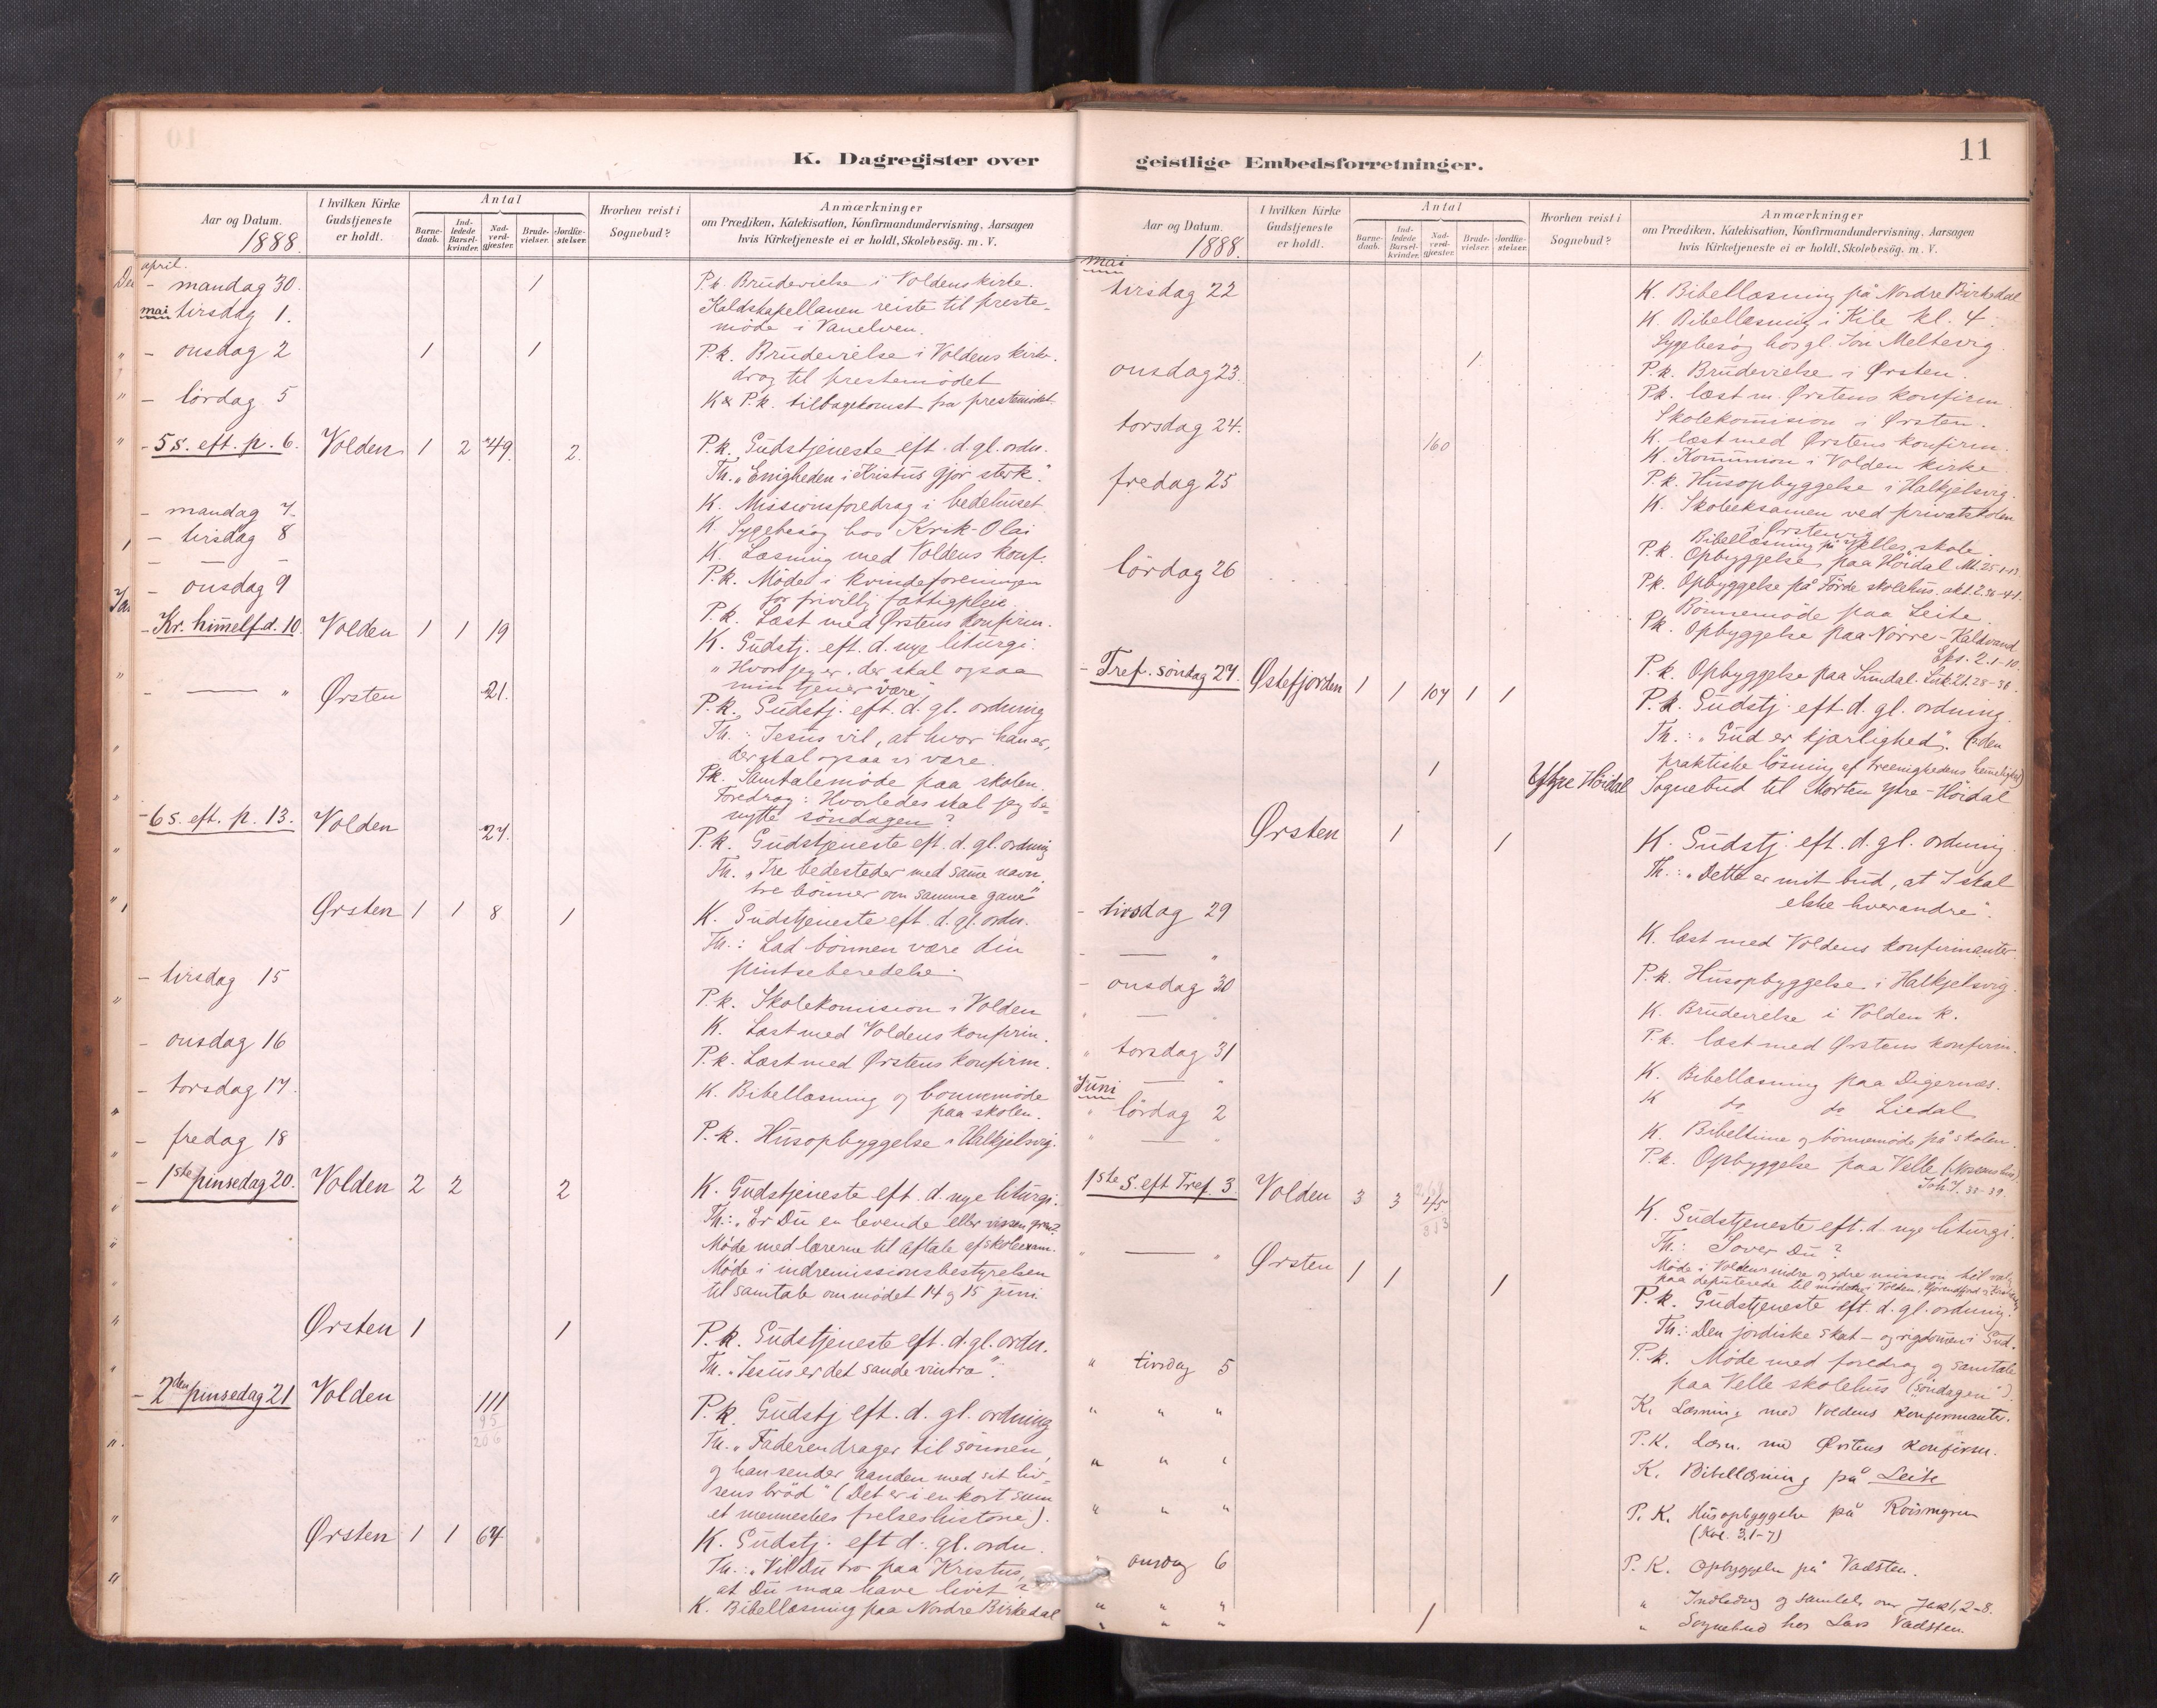 K. Dagregister over
Aar og Datum.
1888.
I hvilken Kirke
Gudstjeneste
er holdt.
Antal
Barne-
daab.
Ind-
ledede
Barsel-
kvinder.
Nad-
verd-
gjæster.
Brude-
vielser.
Jordfæ-
stelser.
Hvorhen reist i
Sognebud?
Anmærkninger
om Prædiken, Katekisation, Konfirmandundervisning, Aarsagen
hvis Kirketjeneste ei er holdt, Skolebesøg. m. V.
april.
- mandag 30. 1 P.k. Brudevielse i Voldens kirke.
mai tirsdag 1. Kaldskapellanen reiste til preste-
møde i Vanelven.
- onsdag 2 1 1 P.k. Brudevielse i Voldens kirke.
drog til prestemødet
- lördag 5 K & P.k. tilbagekomst fra prestemödet
- 5 s. eft. p. 6. Volden 1 2 49. 2. P.k. Gudstjeneste eft. d. gl. ordn.
Th. "Enigheden i Kristus gjør sterk".
- mandag 7 K. Missionsforedrag i bedehuset
- tirsdag 8 K. Sygebesøg hos Krik-Olai
K. Læsning med Voldens konf.
- onsdag 9 P.k. Møde i kvindeforeningen
for frivillig fattigpleie
P.k. Læst med Ørstens konfirm.
- Kr. himelf.d. 10. Volden 1 1 19 K. Gudstj. eft. d. nye liturgi.
"Hvor jeg er, der skal ogsaa
min tjener være"
- — " Ørsten 21. P.k. Gudstj. eft. d. gl. ordning
Th.: Jesus vil, at hvor han er,
der skal ogsaa vi være.
P.k. Samtalemøde paa skolen.
Foredrag: Hvorledes skal jeg be-
nytte söndagen?
- 6 s. eft. p. 13. Volden 27. P.k. Gudstjeneste eft. d. gl. ordning
Th. "Tre bedesteder med samme navn,
tre bönner om samme gave"
Ørsten 1 1 8 1 K. Gudstjeneste eft. d. gl. ordn.
Th.: Lad bönnen være din
pintseberedelse.
- tirsdag 15 P.k. Skolekomision i Volden
K. Læst med Voldens konfirm.
- onsdag 16 P.k. Læst med Ørstens konfirm.
- torsdag 17. K. Bibellæsning og bønnemøde
paa skolen.
- fredag 18 P.k. Husopbyggelse i Halkjelsvig.
- 1ste pinsedag 20. Volden 2 2 2 K. Gudstjeneste eft. d. nye liturgi.
Th.: "Er Du en levende eller vissen gren?
Møde med lærerne til aftale af skoleexam.
Møde i indremissionsbestyrelsen
til samtale om mødet 14 og 15 juni.
Ørsten 1 1 P.k. Gudstjeneste eft. d. gl. ordn.
Th. "Jesus er det sande vintræ".
- 2den pinsedag 21 Volden 111 P.k. Gudstj eft. d. gl. ordning
95
206
Th. "Faderen drager til sönnen,
og han sender aanden med sit liv-
sens bröd" (Det er i en kort sum
et menneskes frelseshistorie).
Ørsten 1 1 64 K. Gudstj. eft d. gl. ordn.
Th.: "Vil Du tro paa Kristus,
at Du maa have livet"?
K. Bibellæsning paa Nordre Birkedal
geistlige Embedsforretninger.
11
Aar og Datum.
1888.
I hvilken Kirke
Gudstjeneste
er holdt.
Antal
Barne-
daab.
Ind-
ledede
Barsel-
kvinder.
Nad-
verd-
gjæster.
Brude-
vielser.
Jordfæ-
stelser.
Hvorhen reist i
Sognebud?
Anmærkninger
om Prædiken, Katekisation, Konfirmandundervisning, Aarsagen
hvis Kirketjeneste ei er holdt, Skolebesøg. m. V.
mai
tirsdag 22 K. Bibellæsning på Nordre Birkedal
K. Bibellæsning i Kile kl. 4.
Sygebesøg hos gl. Jon Meltevig.
onsdag 23. 1 P.k. Brudevielse i Ørsten.
P.k. læst m. Ørstens konfirm.
Skolekomision i Ørsten.
torsdag 24. K. læst med Ørstens konfirm.
160 K. Kommunion i Volden kirke
fredag 25 P.k. Husopbyggelse i Halkjelsvig.
K. Skoleeksamen ved privatskolen
i Ørsten
Bibellæsning på Velle skole.
lördag 26 P.k. Opbyggelse paa Høidal Mt. 25 1-13.
P.k. Opbyggelse på Förde skolehus. akt. 2. 36-41.
Bönnemöde paa Leite.
P.k. Opbyggelse paa Nörre-Kaldvand
Efes. 2. 1-10.
P.k. Opbyggelse paa Sundal. Luk. 21. 25-36.
- Tref. söndag 27. Østefjorden 1 1 104 1 1 P.k. Gudstj. eft. d. gl. ordning.
Th.: "Gud er kjærlighed". (: den
praktiske lösning af treenighedens hemelighed)
1 Ytre Höidal Sognebud til Morten Ytre-Höidal
Ørsten 1 1 K. Gudstj. eft. d. gl. ordning.
Th.: "Dette er mit bud, at I skal
elske hverandre".
- tirsdag 29 K. læst med Voldens konfirmanter
- — " P.k. Husopbyggelse i Halkjelsvig.
- onsdag 30 K. Brudevielse i Volden k.
" — " P.k. læst med Ørstens konfirm.
" torsdag 31 K. Bibellæsning paa Digernæs.
Juni — " K do do Liedal
" lördag 2 K. Bibeltime og bönnemöde på skolen.
" — " P.k. Opbyggelse paa Velle
Joh 7. 33-39.
1ste S. eft Tref. 3. Volden 3 3 45 K. Gudstjeneste eft. d. nye liturgi.
Th.: Sover Du?
Møde i Voldens indre og ydre mission til valg
paa deputerede til møderne i Volden,
" — " Ørsten 1 1 1 P.k. Gudstjeneste eft. d. gl. ordning.
Th.: Den jordiske skat- og rigdomen i Gud.
P.k. Møde med foredrag og samtale
paa Velle skolehus ("söndagen").
" tirsdag 5 K. Læsning med Voldens konfirmanter.
" " " P.K. Læsn. med Ørstens konfirm.
" " " K. Bibellæsning på Leite
" " " P.K. Husopbyggelse på
(Kol. 3. 1-7)
" onsdag 6 P.K. Opbyggelse på Vadsten.
" " " " Indledng og samtale over Jak 1, 2-8.
" " " 1 " Sognebud hos Lars Vadsten.